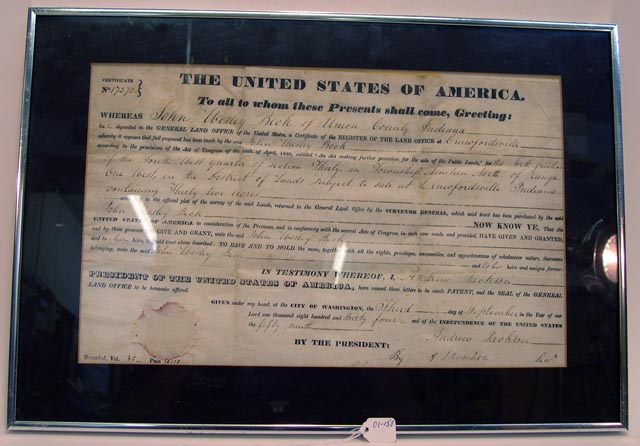 CERTIFICATE
No. 17272
THE UNITED STATES OF AMERICA,
To all to whom these Presents shall come, Greeting:
WHEREAS John Wesley Beck of Union County Indiana
ha deposited in the GENERAL LAND OFFICE of the United States, a Certificate of the REGISTER OF THE LAND OFFICE at Crawfordsville
whereby it appears that full payment has been made by the said John Wesley Beck
according to the provisions of the Act of Congress of the 24th of April, 1820, entitled "An Act making further provision for the sale of the Public Lands," for
of the South West quarter of section Thirty, in Township North of range
One West in the District of Lands subject to sale at Crawfordsville Indiana
containing Thirty five acres
according to the official plat of the survey of the said Lands, returned to the General Land Office by the SURVEYOR GENERAL, which said tract has been purchased by the said
John Wesley Beck NOW KNOW YE, That the
UNITED STATES OF AMERICA, in consideration of the Premises, and in conformity with the several Acts of Congress, in such case made and provided, HAVE GIVEN AND GRANTED,
and by these presents DO GIVE AND GRANT, unto the said John Wesley Beck
and to his heirs, the said tract above described: TO HAVE AND TO HOLD the same, together with all the rights, privileges, immunities, and appurtenances of whatsoever nature, thereunto
belonging, unto the said John Wesley Beck and to his heirs and assigns forever.
IN TESTIMONY WHEREOF, I, Andrew Jackson
PRESIDENT OF THE UNITED STATES OF AMERICA, have caused these Letters to be made PATENT, and the SEAL of the GENERAL
LAND OFFICE to be hereunto affixed.
GIVEN under my hand, at the CITY OF WASHINGTON, the Third day of September in the Year of our
Lord one thousand eight hundred and thirty four and of the INDEPENDENCE OF THE UNITED STATES
the fifty ninth
BY THE PRESIDENT: Andrew Jackson
By Sec'y
Recorded, Vol. 35 Page
01-158